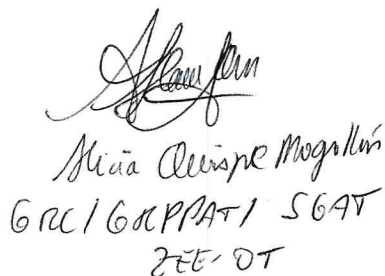 Alicia Quispe Mogollón
GRC/GRPPAT/ SGAT
ZEE-OT